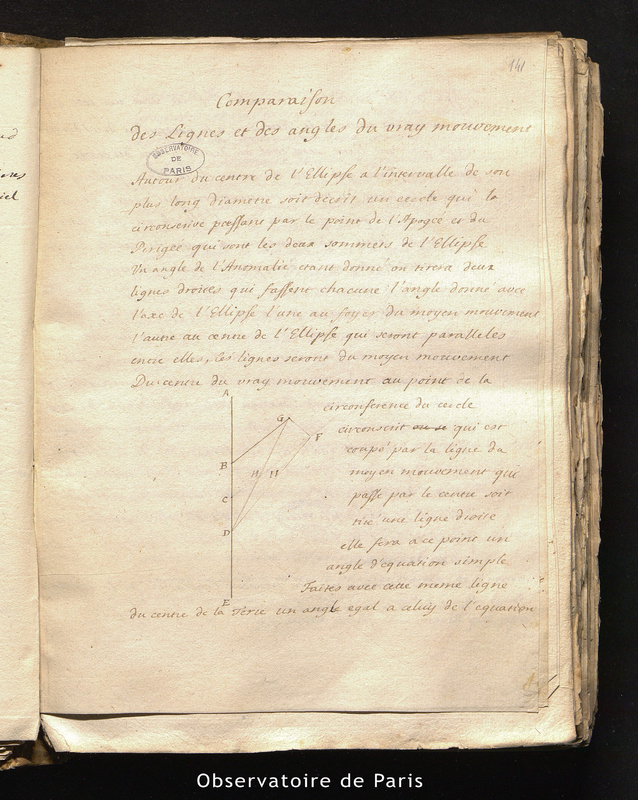 141
Comparaison
des Lignes et des angles du vray mouvement
OBSERVATOIRE
DE
PARIS
Autour du centre de l'Ellipse a l'intervalle de son
plus long diametre soit décrit un cercle qui la
circonscrive passant par le point de l'Apogée et du
Perigée qui sont les deux sommets de l'Ellipse
Un angle de l'Anomalie etant donné on tirera deux
lignes droites qui fassent chacune l'angle donné avec
l'axe de l'Ellipse l'une au foyer du moyen mouvement
l'autre au centre de l'Ellipse qui seront paralleles
entre elles, les lignes seront du moyen mouvement
Du centre du vray mouvement au point de la
circonference du cercle
circonscrit qui est
coupé par la ligne du
moyen mouvement qui
passe par le centre soit
tiré une ligne droite
elle fera a ce point un
angle d'equation simple
Faites avec cette meme ligne
du centre de la Terre un angle egal a celuy de l'equation
A
G
F
B
H
H
C
D
E
Observatoire de Paris